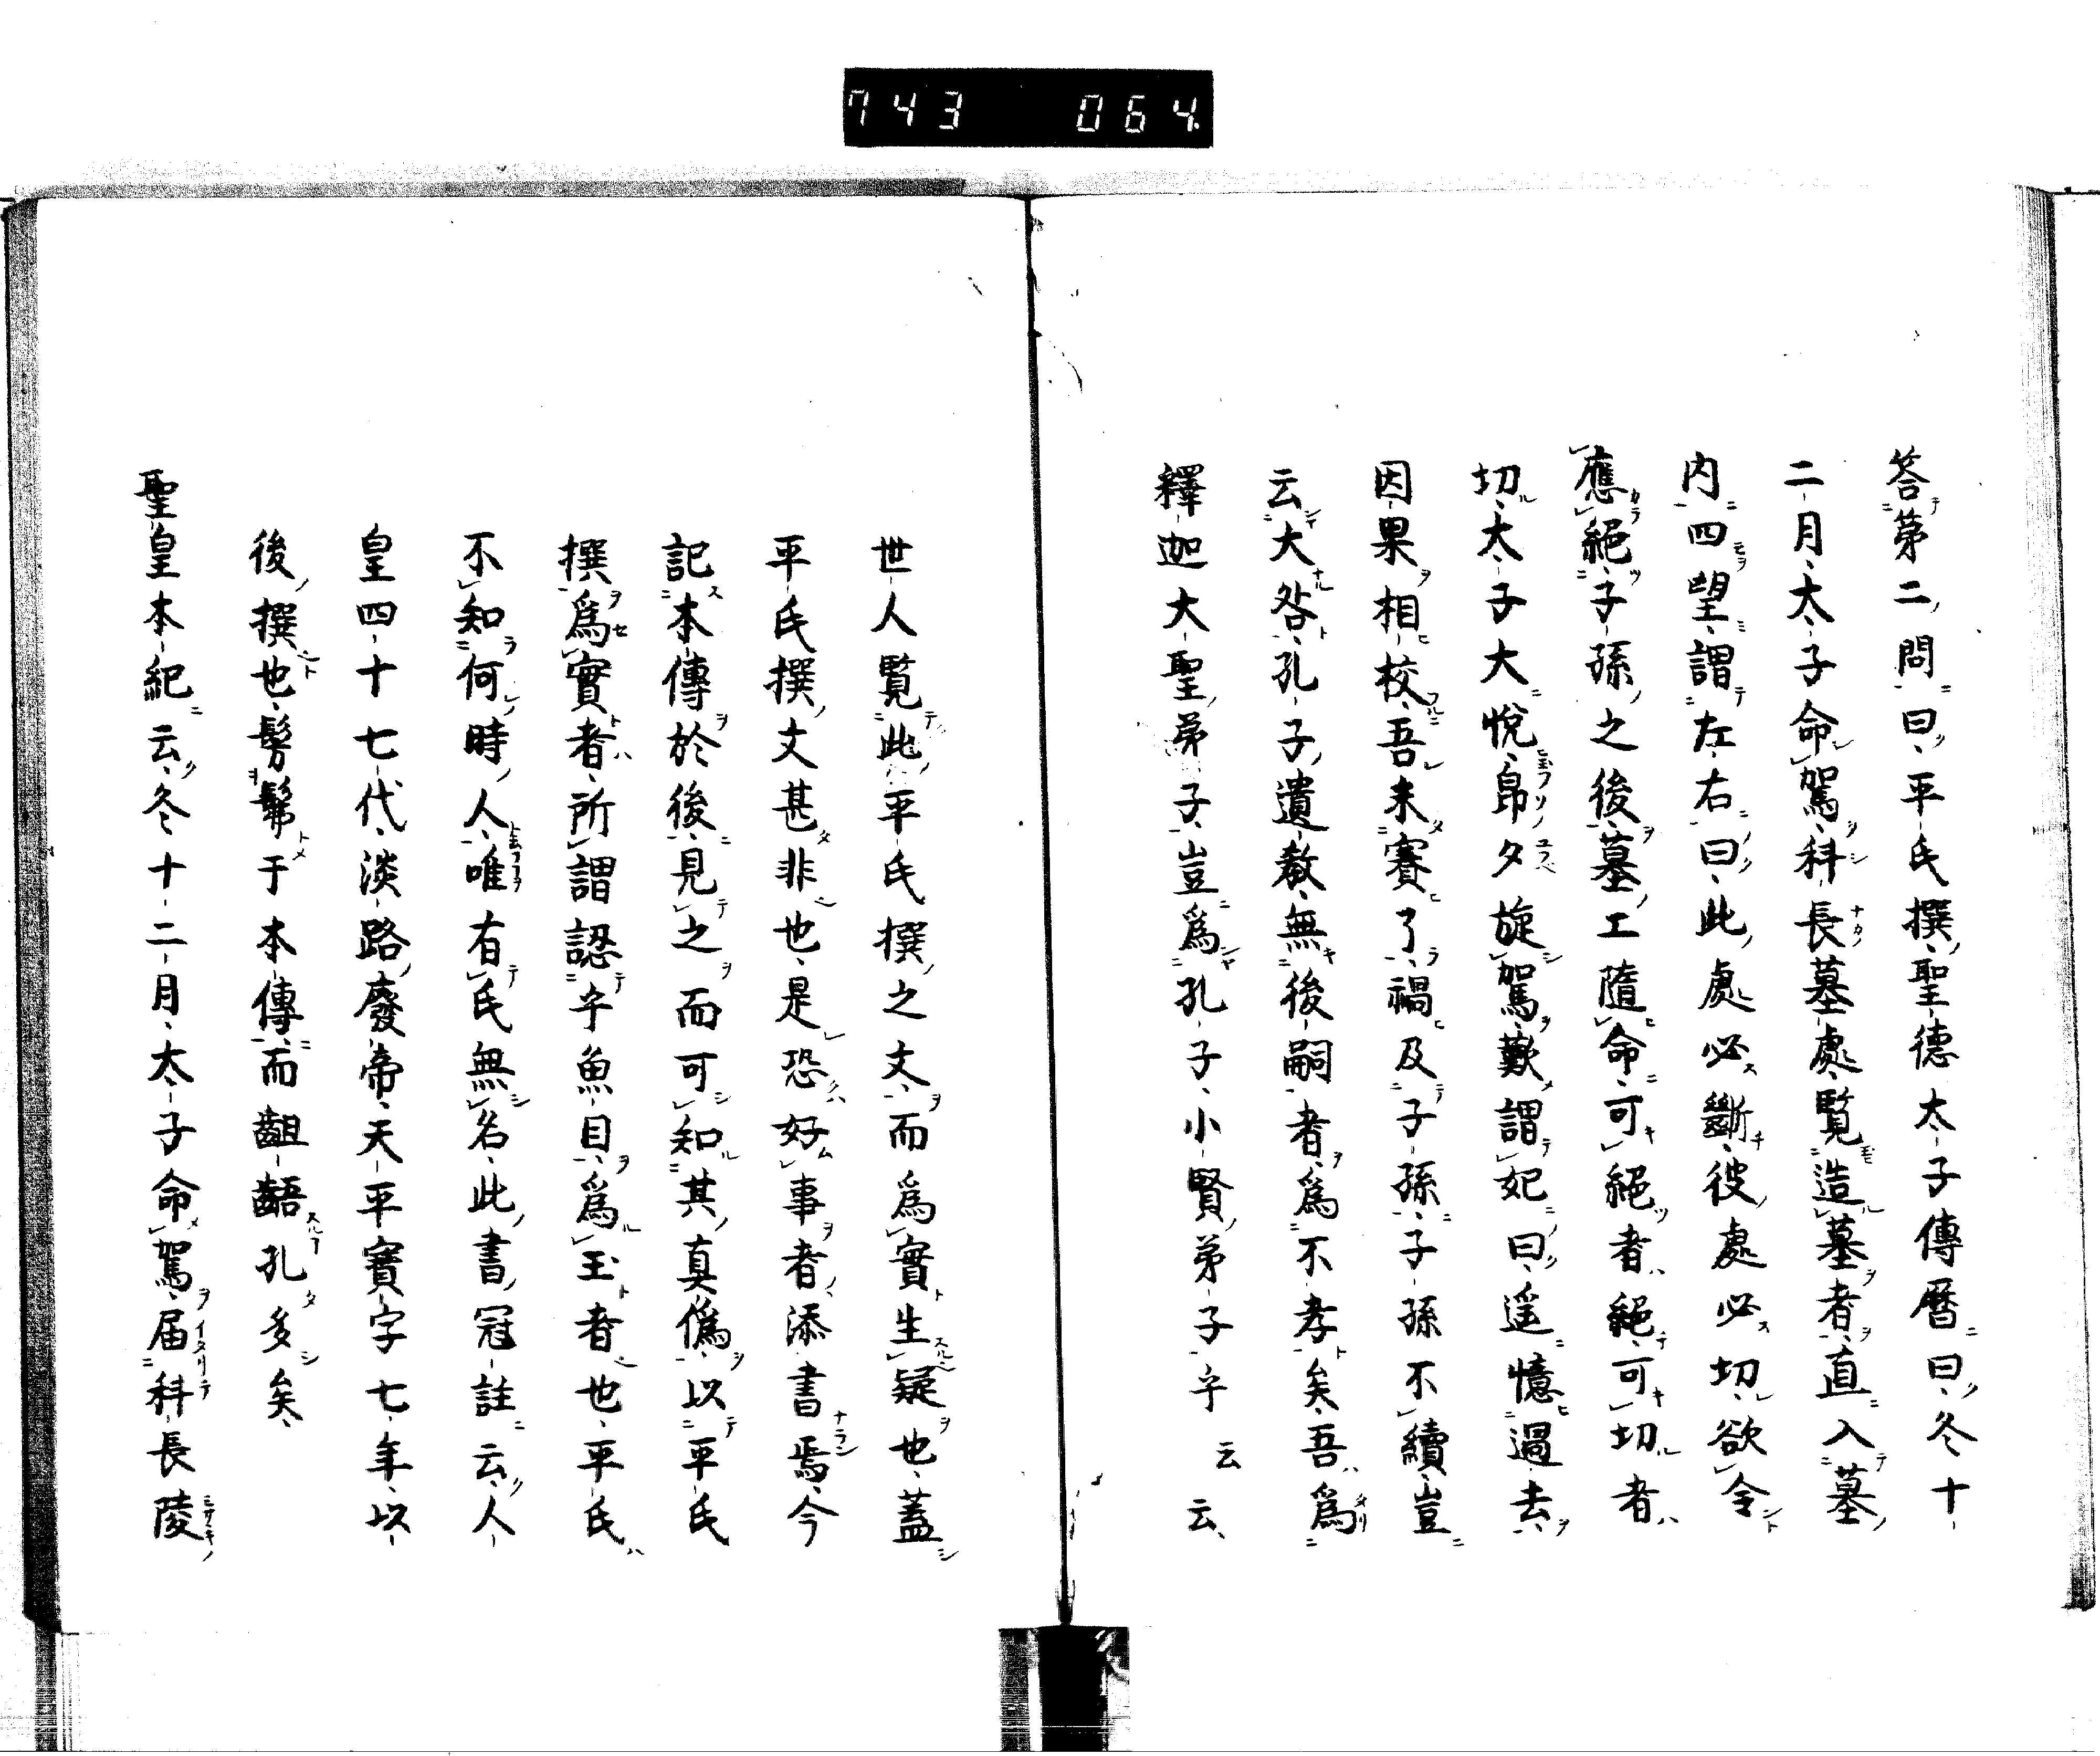 743 064
答第二問曰平氏撰聖德太子傳曆曰冬十
二月太子命駕科長墓處覧造墓者直入墓
内四望謂左右曰此處必斷彼處必切欲令
應絕子孫之後墓工隨命可絕者絕可切者
切太子大悅帛夕旋駕歎謂妃曰遥憶過去
因果相校吾未賽了禍及子孫子孫不續豈
云大咎孔子遺教無後嗣者爲不孝矣吾爲
釋迦大聖弟子豈爲孔子小賢弟子乎云云
世人覧此平氏撰之文而爲實生疑也蓋
平氏撰文甚非也是恐好事者添書焉今
記本傳於後見之而可知其真僞以平氏
撰爲實者所謂認乎魚目爲玉者也平氏
不知何時人唯有氏無名此書冠註云人
皇四十七代淡路廢帝天平寶字七年以
後撰也髣髴于本傳而齟齬孔多矣
聖皇本紀云冬十二月太子命駕届科長陵